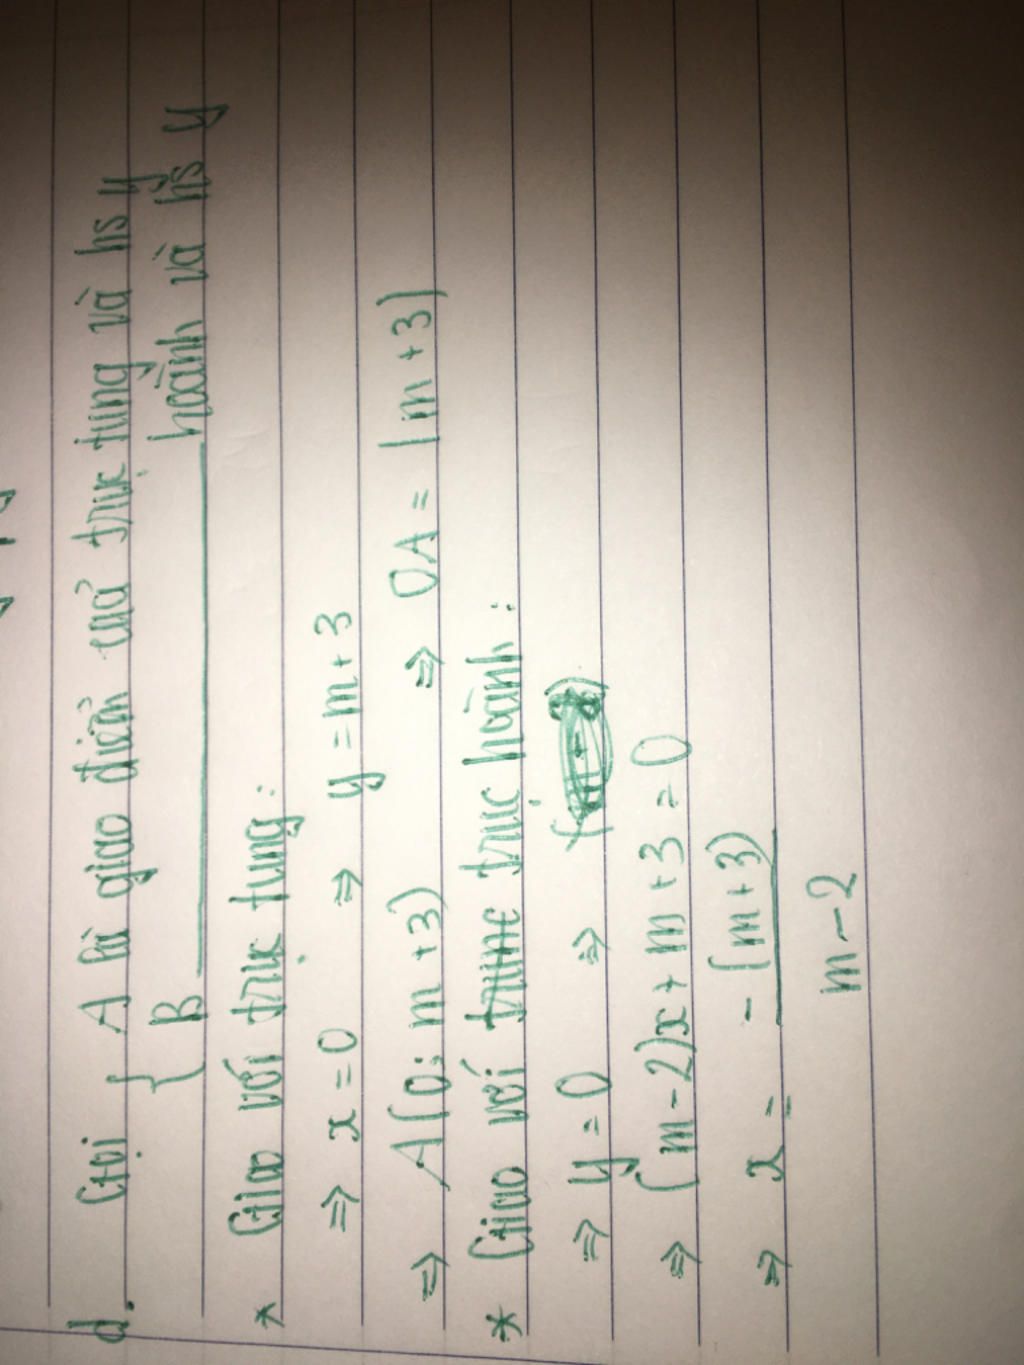 d. Gọi { A là giao điểm của trục tung và hs y
B ________ hoành và hs y
* Giao với trục tung:
⇒ x = 0 ⇒ y = m + 3
⇒ A(0; m + 3) ⇒ OA = |m + 3|
* Giao với trục hoành:
⇒ y = 0 ⇒
⇒ (m - 2)x + m + 3 = 0
⇒ x = -(m + 3)
m - 2